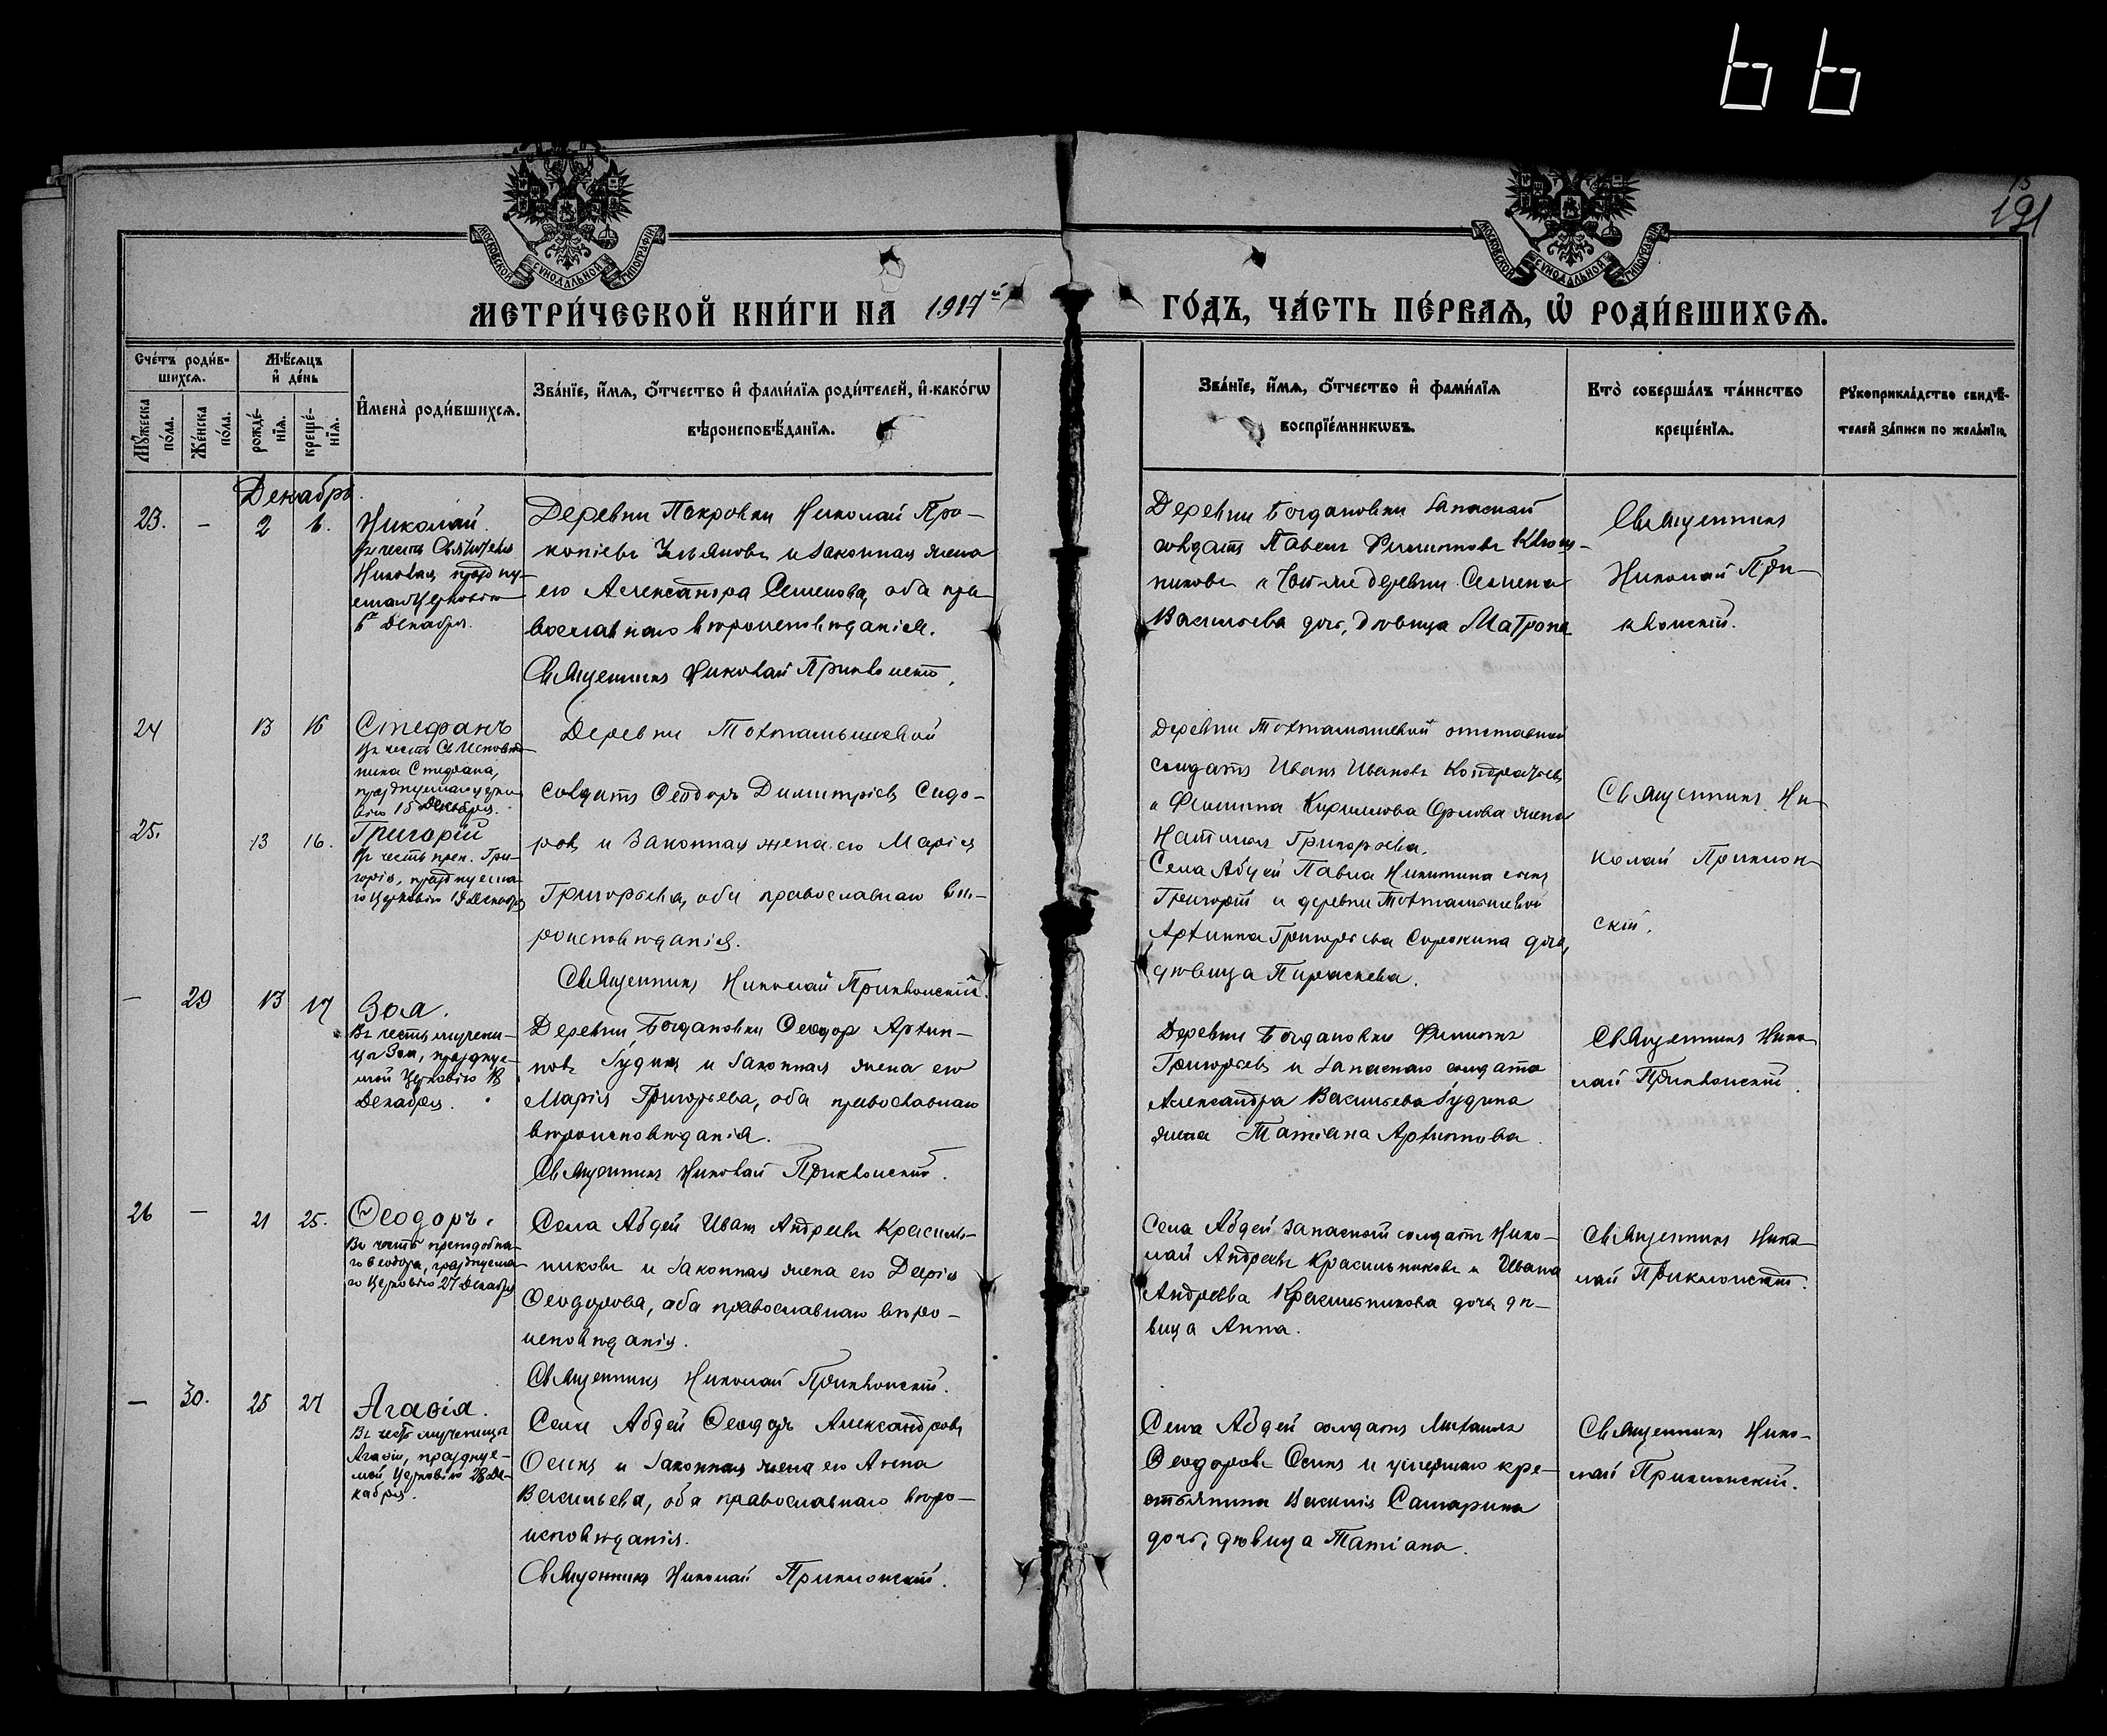 66
15
191
МОСКОВСКОЙ СѴНОДАЛЬНОЙ ТИПОГРАФІИ
МОСКОВСКОЙ СѴНОДАЛЬНОЙ ТИПОГРАФІИ
МЕТРИ́ЧЕСКОЙ КНИ́ГИ НА 1917й ГО́ДЪ, ЧА́СТЬ ПЕ́РВАѦ, Ѡ҆ РОДИ́ВШИХСѦ.
Сче́тъ роди́в-
шихсѧ.
Мѣ́сѧцъ
и҆ де́нь
Мꙋ́жеска
по́ла.
Же́нска
по́ла.
рожде́-
нїѧ.
креще́-
нїѧ.
И҆мена̀ роди́вшихсѧ.
Зва́нїе, и҆́мѧ, ѻ҆́тчество и҆ фами́лїѧ роди́телей, и҆ како́гѡ
вѣроисповѣ́данїѧ.
Зва́нїе, и҆́мѧ, ѻ҆́тчество и҆ фами́лїѧ
воспрїе́мникѡвъ.
Кто̀ соверша́лъ та́инство
креще́нїѧ.
Рꙋкоприкла́дство свидѣ́-
телей за́писи по жела́нїю.
Декабрь.
23. - 2 6.
Николай.
въ честь Святителя
Николая, праздну-
емаго Церковію
6го Декабря.
Деревни Покровки Николай Про-
копіевъ Ульяновъ и законная жена
его Александра Семенова, оба пра-
вославнаго вѣроисповѣданія.
Священникъ Николай Приклонскій.
Деревни Богдановки запасный
солдатъ Павелъ Филипповъ Ключ-
никовъ и той же деревни Семена
Васильева дочь, дѣвица Матрона
Священникъ
Николай При-
клонскій.
24 13 16
Стефанъ
въ честь Св. Исповѣд-
ника Стефана,
празднуемаго церко-
вію 15 Декабря.
25. 13 16.
Григорій
въ честь преп. Гри-
горія, празднуема-
го Церковію 19 Декабря
Деревни Тохтамышевой
солдатъ Ѳеодоръ Димитріевъ Сидо-
ровъ и законная жена его Марія
Григорьева, оба православнаго вѣ-
роисповѣданія.
Священникъ Николай Приклонскій.
Деревни Тохтамышевой отставной
солдатъ Иванъ Ивановъ Кондратьевъ
и Филиппа Кириллова Орлова жена
Наталья Григорьева.
Села Абдей Павла Никитина сынъ
Григорій и деревни Тохтамышевой
Архиппа Григорьева Сорокина дочь,
дѣвица Параскева.
Священникъ Ни-
колай Приклон-
скій.
- 29 13 17
Зоя.
Въ честь мучени-
цы Зои, празднуе-
мой Церковію 18
Декабря.
Деревни Богдановки Ѳеодор Архип-
повъ Гудинъ и законная жена его
Марія Григорьева, оба православнаго
вѣроисповѣданія.
Священникъ Николай Приклонскій.
Деревни Богдановки Филиппъ
Григорьевъ и запаснаго солдата
Александра Васильева Гудина
жена Татіана Архиппова.
Священникъ Нико-
лай Приклонскій.
26 - 21 25.
Ѳеодоръ.
Въ честь преподобна-
го Ѳеодора, празднуема-
го Церковію 27 Декабря
Села Абдей Иванъ Андреевъ Красиль-
никовъ и законная жена его Дарія
Ѳеодорова, оба православнаго вѣро-
исповѣданія.
Священникъ Николай Приклонскій.
Села Абдей запасной солдатъ Нико-
лай Андреевъ Красильниковъ и Ивана
Андреева Красильникова дочь дѣ-
вица Анна.
Священникъ Нико-
лай Приклонскій.
- 30. 25 27
Агаѳія.
Въ честь мученицы
Агаѳіи, празднуе-
мой Церковію 28 Де-
кабря.
Села Абдей Ѳеодоръ Александровъ
Осинъ и законная жена его Анна
Васильева, оба православнаго вѣро-
исповѣданія.
Священникъ Николай Приклонскій.
Села Абдей солдатъ Михаилъ
Ѳеодоровъ Осинъ и умершаго кре-
стьянина Василія Самарина
дочь, дѣвица Татіана.
Священникъ Нико-
лай Приклонскій.